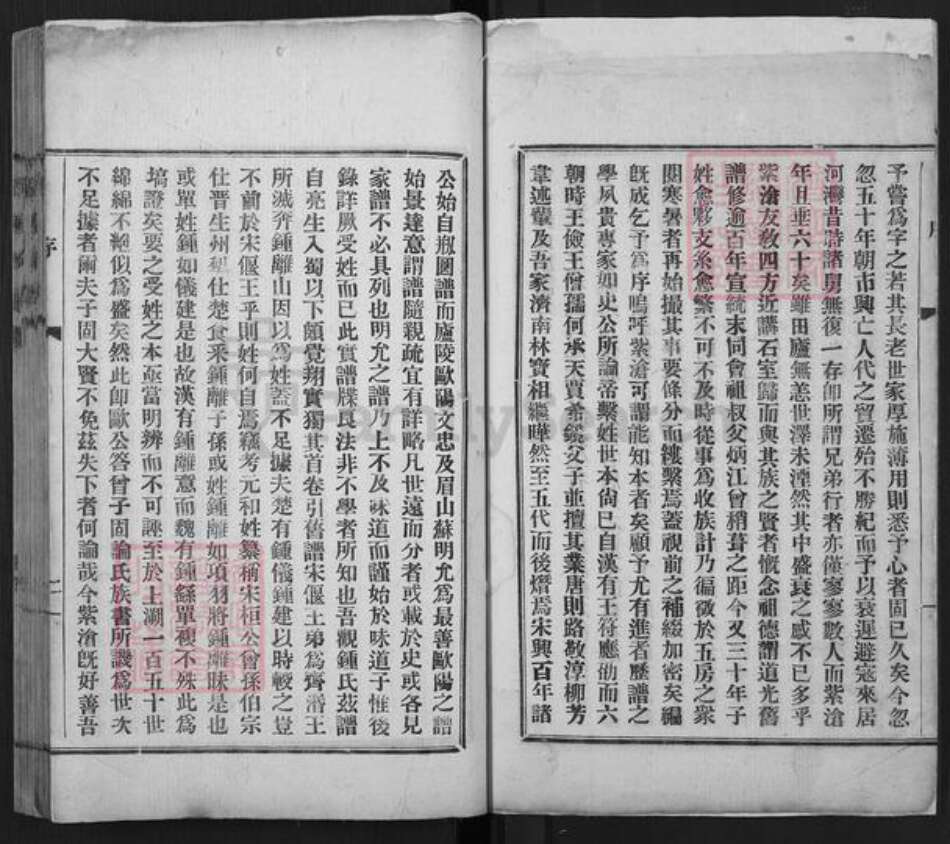 予嘗爲字之若其長老世家厚施薄用則悉予心者固已久矣今忽
忽五十年朝市興亡人代之貿遷殆不勝紀而予以衰遲避寇來居
河灣昔時諸舅無復一存卽所謂兄弟行者亦僅寥寥數人而紫滄
年且垂六十矣雖田廬無恙世澤未湮然其中盛衰之感不已多乎
紫滄友教四方近講石室歸而與其族之賢者慨念祖德謂道光舊
譜修逾百年宣統末同會祖叔父炳江曾稍葺之距今又三十年子
姓愈夥支系愈繁不可不及時從事爲收族計乃徧徵於五房之衆
閱寒暑者再始撮其事要條分而縷繫焉蓋視前之補綴加密矣編
旣成乞予爲序嗚呼紫滄可謂能知本者矣顧予尤有進者歷譜之
學夙貴專家如史公所論帝繫姓世本尙已自漢有王符應劭而六
朝時王儉王僧孺何承天賈希鏡父子並擅其業唐則路敬淳柳芳
韋述輩及吾家濟南林寶相繼曄然至五代而後熸焉宋興百年諸
公始自剏圖譜而廬陵歐陽文忠及眉山蘇明允爲最善歐陽之譜
始景達意謂譜隨親疏宜有詳略凡世遠而分者或載於史或各見
家譜不必具列也明允之譜乃上不及味道而謹始於味道子惟後
錄詳厥受姓而已此實譜牒良法非不學者所知也吾觀鍾氏茲譜
自亮生入蜀以下頗覺翔實獨其首卷引舊譜宋偃王弟爲齊湣王
所滅奔鍾離山因以爲姓蓋不足據夫楚有鍾儀鍾建以時較之豈
不前於宋偃王乎則姓何自焉竊考元和姓纂稱宋桓公曾孫伯宗
仕晉生州犂仕楚食釆鍾離子孫或姓鍾離如項羽將鍾離昧是也
或單姓鍾如儀建是也故漢有鍾離意而魏有鍾繇單複不殊此爲
塙證矣要之受姓之本亟當明辨而不可誣至於上溯一百五十世
綿綿不絕似爲盛矣然此卽歐公答曾子固論氏族書所譏爲世次
不足據者爾夫子固大賢不免茲失下者何論哉今紫滄旣好善吾
序